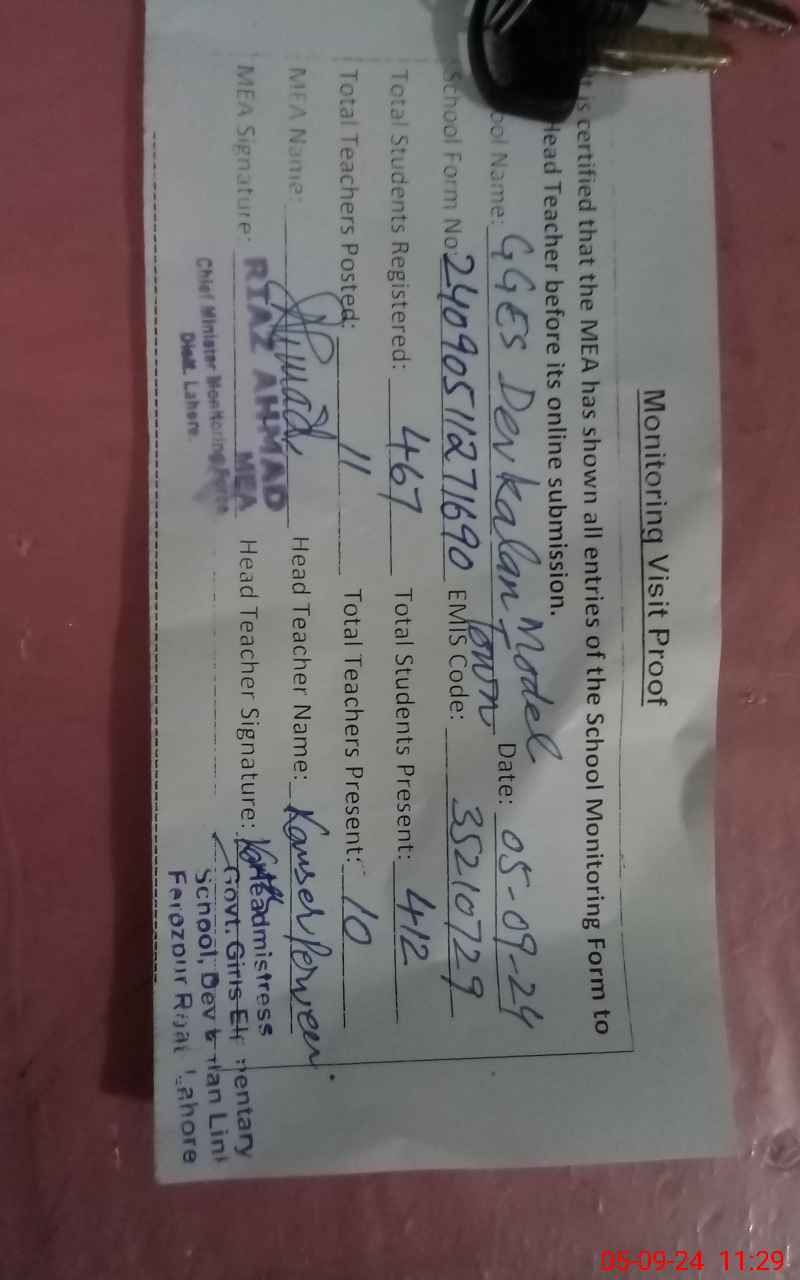 Monitoring Visit Proof
It is certified that the MEA has shown all entries of the School Monitoring Form to
Head Teacher before its online submission.
ool Name: GGES Dev Kalan Model Town Date: 05-09-24
School Form No: 2409051127 1690 EMIS Code: 35210729
Total Students Registered: 467 Total Students Present: 412
Total Teachers Posted: 11 Total Teachers Present: 10
MEA Name: Head Teacher Name: Kauser Perveen
MEA Signature: Head Teacher Signature:
RIAZ AHMAD
MEA
Chief Minister Monitoring Force
Distt. Lahore.
Headmistress
Govt. Girls Elementary
School, Dev Kalan Link
Ferozpur Road Lahore
05-09-24 11:29